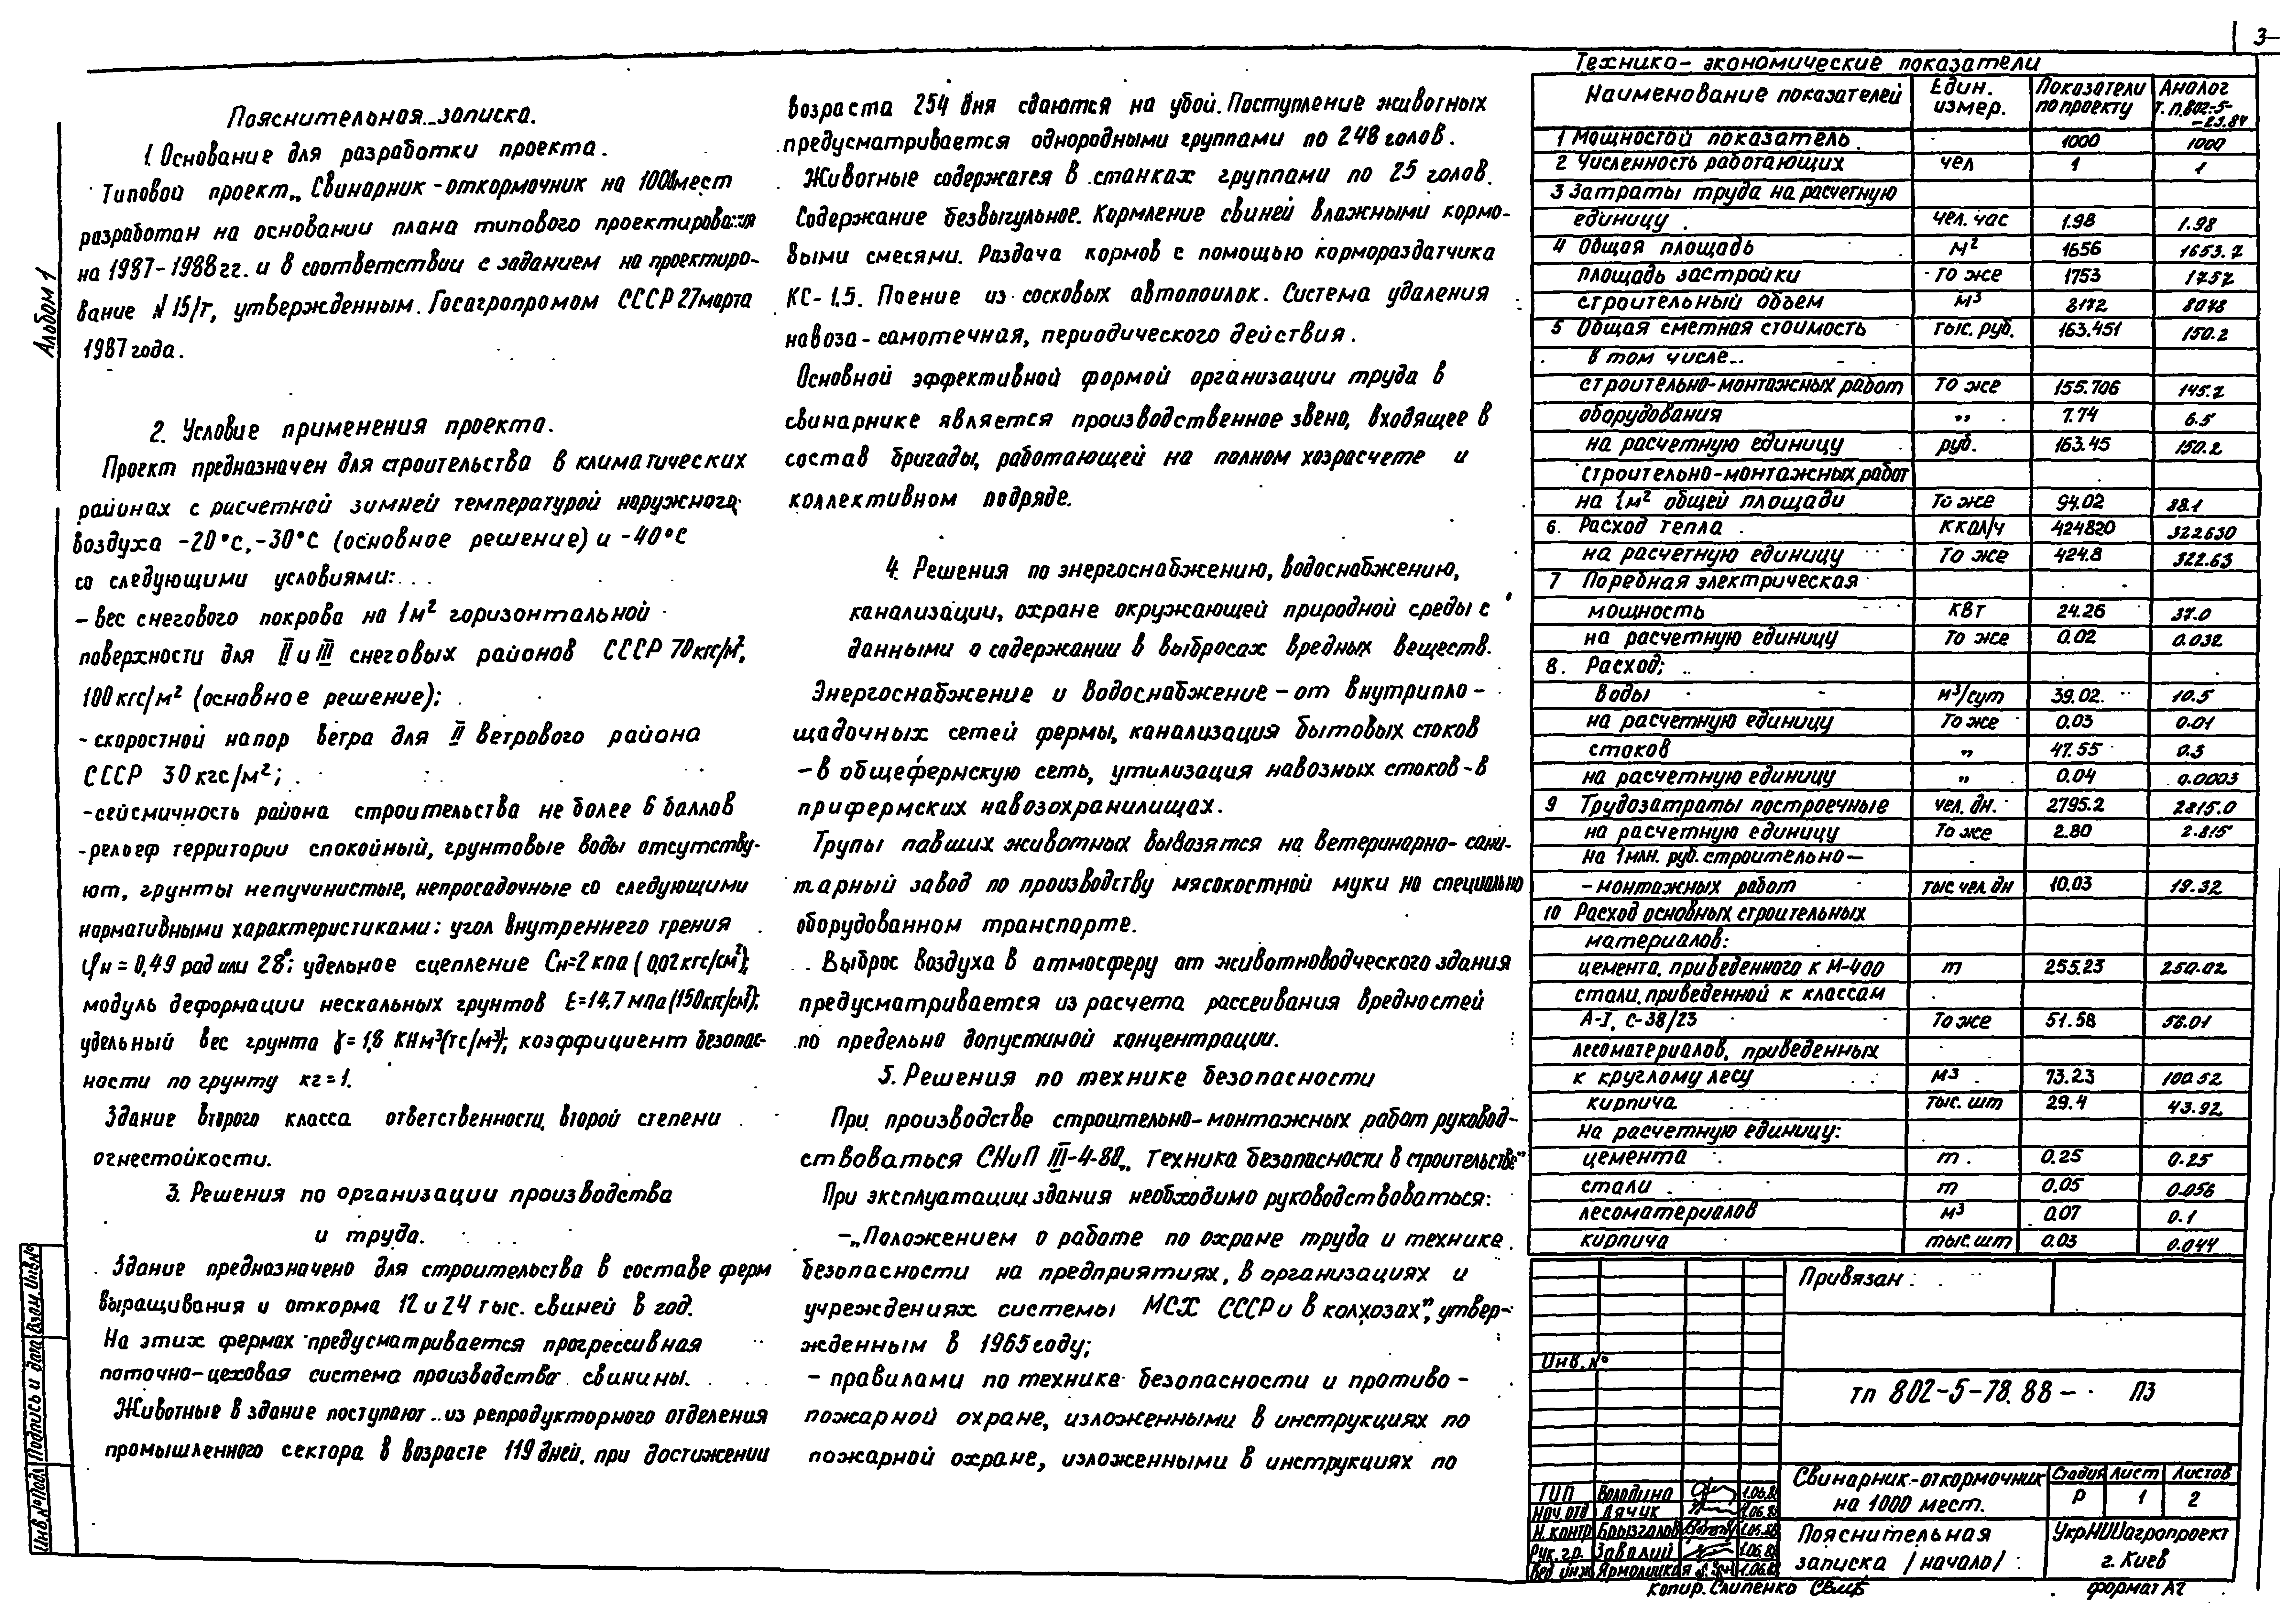 3
Альбом 1
Пояснительная записка.
1. Основание для разработки проекта.
Типовой проект „Свинарник-откормочник на 1000 мест
разработан на основании плана типового проектирования
на 1987-1988 гг. и в соответствии с заданием на проектиро-
вание N 15/т, утвержденным Госагропромом СССР 27 марта
1987 года.
2. Условие применения проекта.
Проект предназначен для строительства в климатических
районах с расчетной зимней температурой наружного
воздуха -20°С, -30°С (основное решение) и -40°С
со следующими условиями:
- вес снегового покрова на 1м² горизонтальной
поверхности для II и III снеговых районов СССР 70 кгс/м²,
100 кгс/м² (основное решение);
- скоростной напор ветра для II ветрового района
СССР 30 кгс/м²;
- сейсмичность района строительства не более 6 баллов
- рельеф территории спокойный, грунтовые воды отсутству-
ют, грунты непучинистые, непросадочные со следующими
нормативными характеристиками: угол внутреннего трения
φн = 0,49 рад или 28°; удельное сцепление Сн=2 кпа (0,02 кгс/см²);
модуль деформации нескальных грунтов Е=14,7 мпа (150 кгс/см²);
удельный вес грунта γ= 1,8 КНм³(тс/м³); коэффициент безопас-
ности по грунту кг=1.
Здание второго класса ответственности, второй степени
огнестойкости.
3. Решения по организации производства
и труда.
Здание предназначено для строительства в составе ферм
выращивания и откорма 12 и 24 тыс. свиней в год.
На этих фермах предусматривается прогрессивная
поточно-цеховая система производства свинины.
Животные в здание поступают из репродукторного отделения
промышленного сектора в возрасте 119 дней, при достижении
возраста 254 дня сдаются на убой. Поступление животных
предусматривается однородными группами по 248 голов.
Животные содержатся в станках группами по 25 голов.
Содержание безвыгульное. Кормление свиней влажными кормо-
выми смесями. Раздача кормов с помощью кормораздатчика
КС-1.5. Поение из сосковых автопоилок. Система удаления
навоза - самотечная, периодического действия.
Основной эффективной формой организации труда в
свинарнике является производственное звено, входящее в
состав бригады, работающей на полном хозрасчете и
коллективном подряде.
4. Решения по энергоснабжению, водоснабжению,
канализации, охране окружающей природной среды с
данными о содержании в выбросах вредных веществ.
Энергоснабжение и водоснабжение - от внутрипло-
щадочных сетей фермы, канализация бытовых стоков
- в общефермскую сеть, утилизация навозных стоков - в
прифермских навозохранилищах.
Трупы павших животных вывозятся на ветеринарно-сани-
тарный завод по производству мясокостной муки на специально
оборудованном транспорте.
Выброс воздуха в атмосферу от животноводческого здания
предусматривается из расчета рассеивания вредностей
по предельно допустимой концентрации.
5. Решения по технике безопасности
При производстве строительно-монтажных работ руковод-
ствоваться СНиП III-4-80 „Техника безопасности в строительстве"
При эксплуатации здания необходимо руководствоваться:
- „Положением о работе по охране труда и технике
безопасности на предприятиях, в организациях и
учреждениях системы МСХ СССР и в колхозах", утвер-
жденным в 1965 году;
- правилами по технике безопасности и противо-
пожарной охране, изложенными в инструкциях по
пожарной охране, изложенными в инструкциях по
Технико-экономические показатели
Наименование показателей Един. измер. Показатели по проекту Аналог т.п.802-5-23.84
1 Мощностой показатель 1000 1000
2 Численность работающих чел 1 1
3 Затраты труда на расчетную
единицу чел. час 1.98 1.98
4 Общая площадь м² 1656 1653.7
площадь застройки то же 1753 1757
строительный объем м³ 8172 8078
5 Общая сметная стоимость тыс. руб. 163.451 150.2
в том числе
строительно-монтажных работ то же 155.706 145.7
оборудования „ 7.74 6.5
на расчетную единицу руб. 163.45 150.2
строительно-монтажных работ
на 1м² общей площади То же 94.02 88.1
6. Расход тепла ккал/ч 424820 322630
на расчетную единицу То же 424.8 322.63
7 Поребная электрическая
мощность кВт 24.26 37.0
на расчетную единицу То же 0.02 0.032
8. Расход:
воды м³/сут 39.02 10.5
на расчетную единицу То же 0.03 0.01
стоков „ 47.55 0.3
на расчетную единицу „ 0.04 0.0003
9 Трудозатраты построечные чел. дн. 2795.2 2815.0
на расчетную единицу То же 2.80 2.815
на 1 млн. руб. строительно-
-монтажных работ тыс чел. дн 10.03 19.32
10 Расход основных строительных
материалов:
цемента, приведенного к М-400 т 255.23 250.02
стали, приведенной к классам
А-I, С-38/23 То же 51.58 56.01
лесоматериалов, приведенных
к круглому лесу м³ 73.23 100.52
кирпича тыс. шт 29.4 43.92
на расчетную единицу:
цемента т. 0.25 0.25
стали т 0.05 0.056
лесоматериалов м³ 0.07 0.1
кирпича тыс. шт 0.03 0.044
Привязан:
Инв. №
тп 802-5-78.88 - ПЗ
Свинарник-откормочник
на 1000 мест.
Стадия Лист Листов
Р 1 2
Пояснительная
записка /начало/
УкрНИИагропроект
г. Киев
ГИП Володина 1.06.88
Нач. отд Лячик 1.06.88
Н. контр Брызгалов 1.05.88
Рук. гр. Завалий 1.06.88
Вед. инж Ярмолицкая 1.06.88
Копир. Слипенко
формат А2
Инв. № подл Подпись и дата Взам. Инв. №